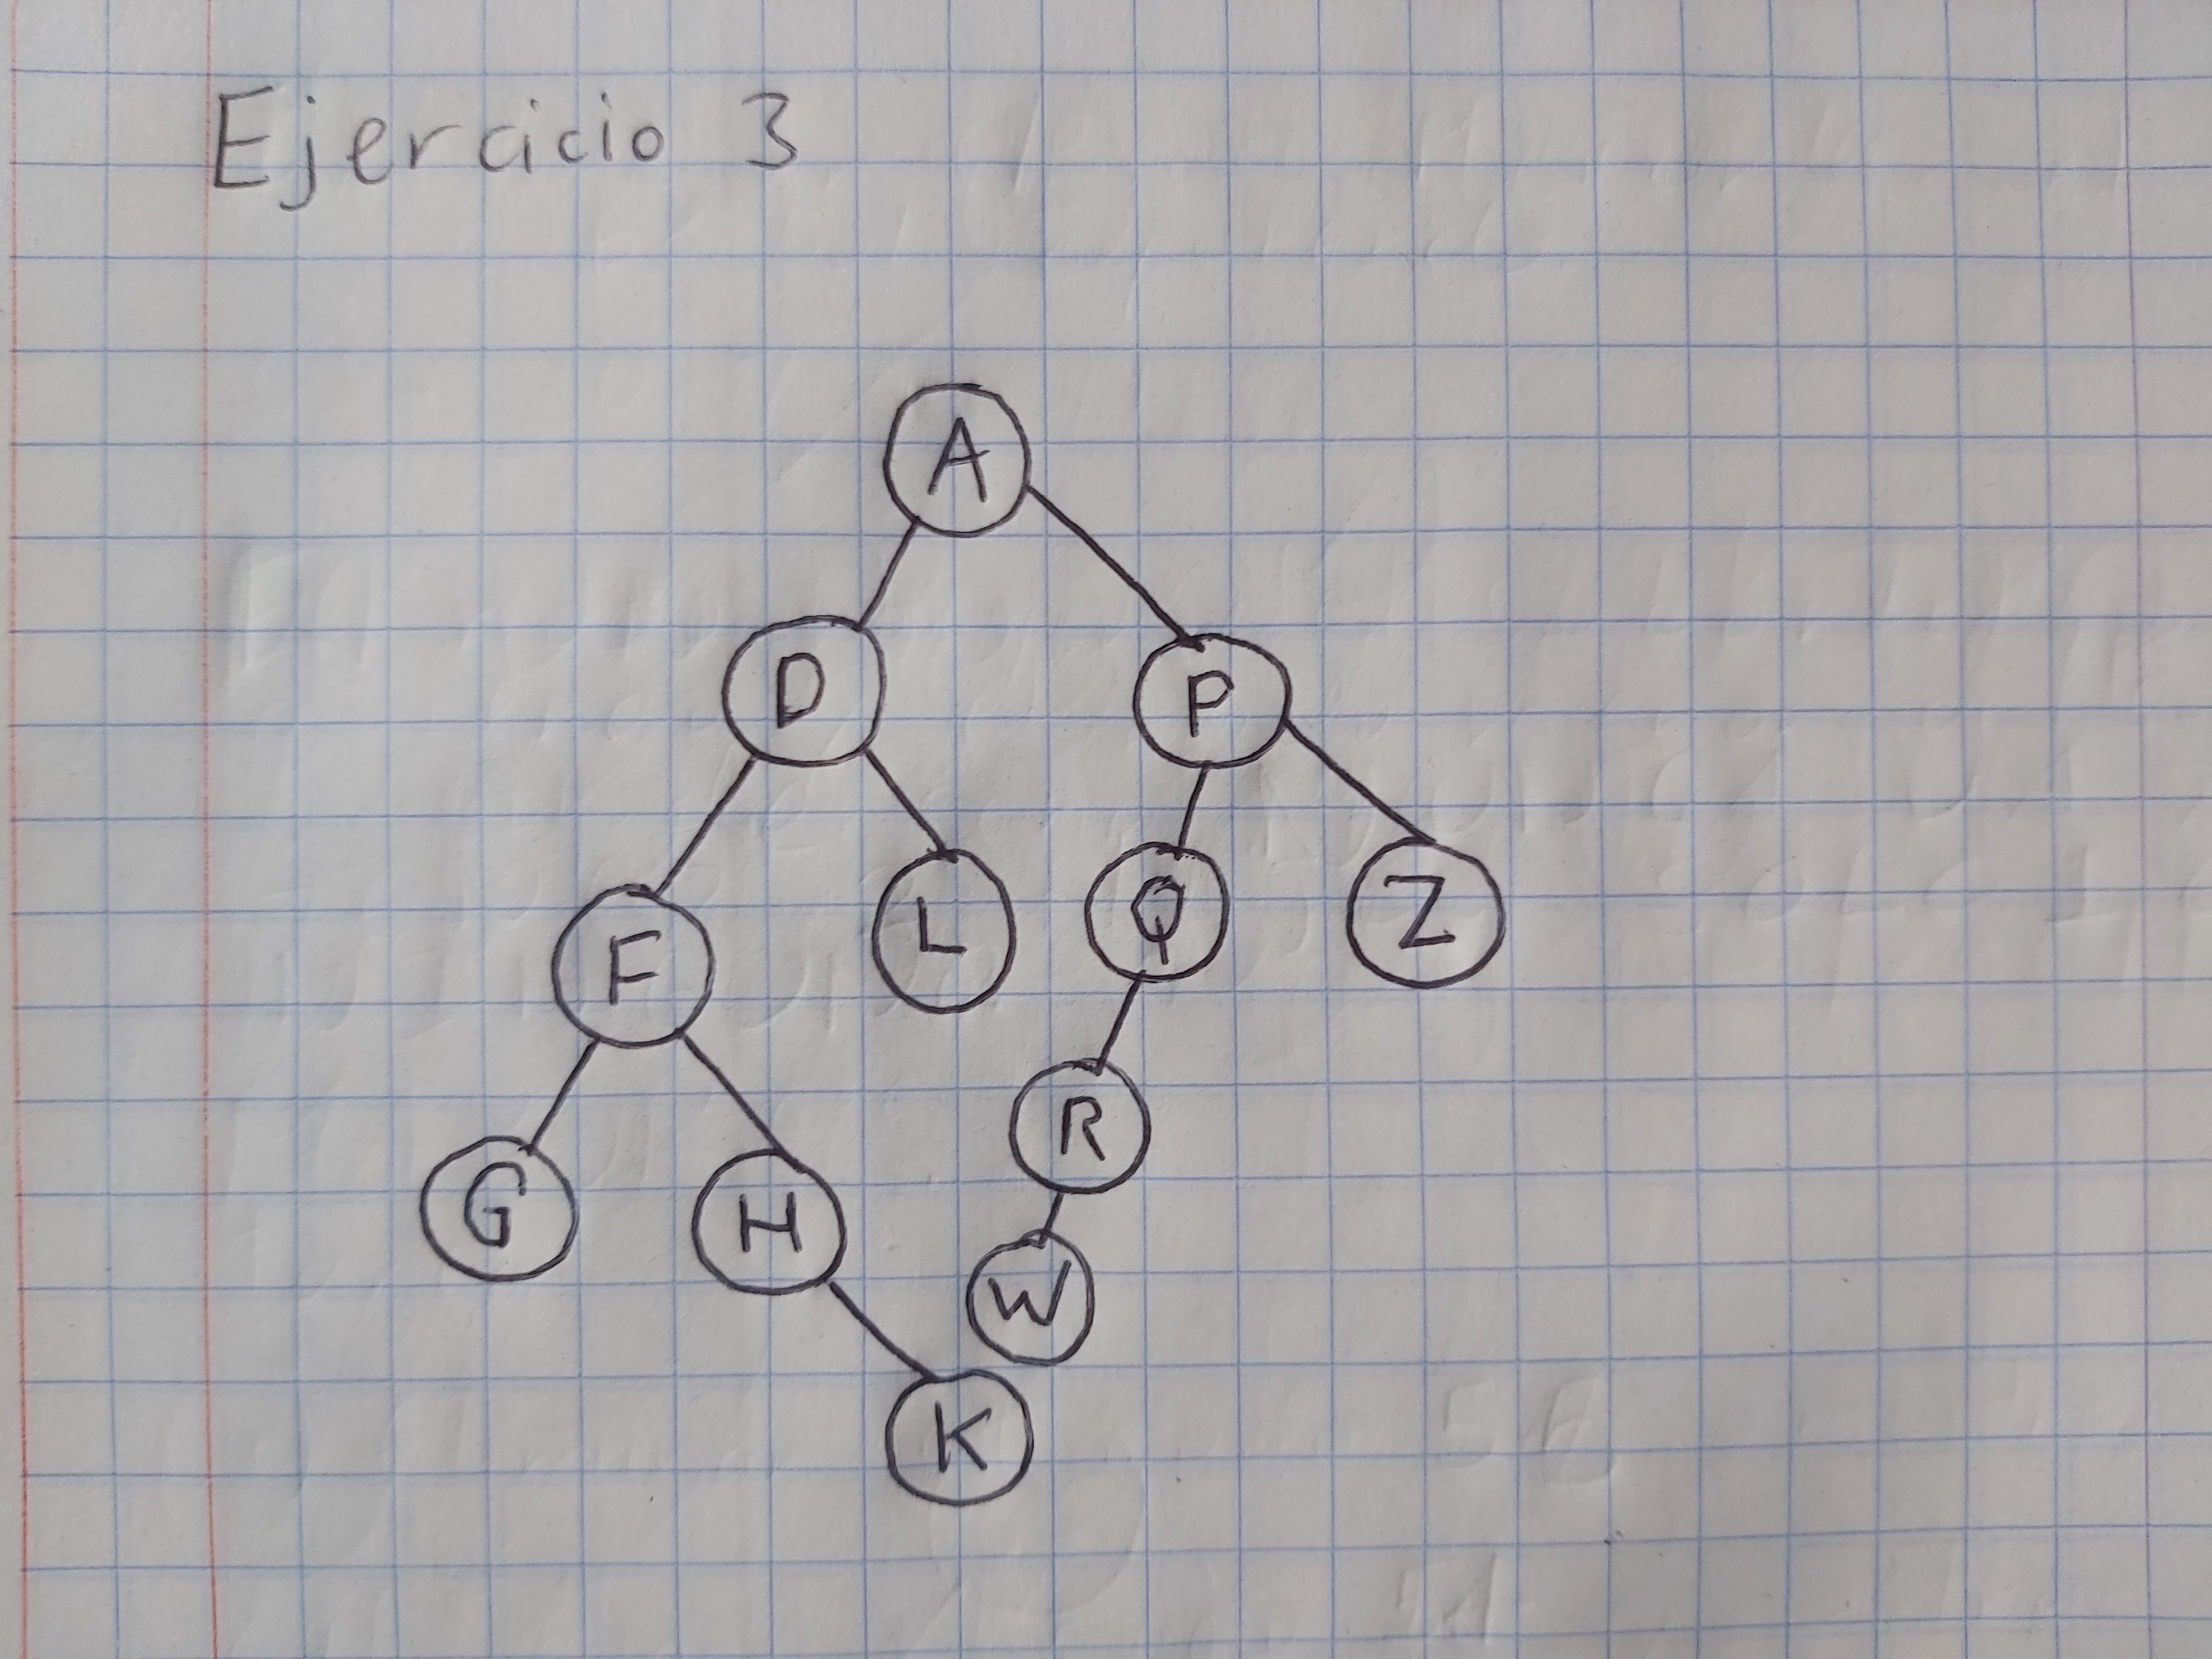 Ejercicio 3
A
D P
F L Q Z
G H R
W
K